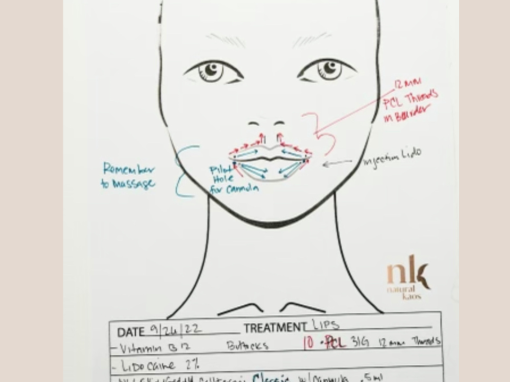 12mm
PCL Threads
in Boarder
Remember
to Massage
Pilot
Hole
for Cannula
Injection Lido
nk
natural
kaos
DATE 9/26/22 TREATMENT LIPS
- Vitamin B12 Buttocks 10 - PCL 31G 12mm Threads
- LIDOCAINE 2%
Classic w/Cannula .5ml